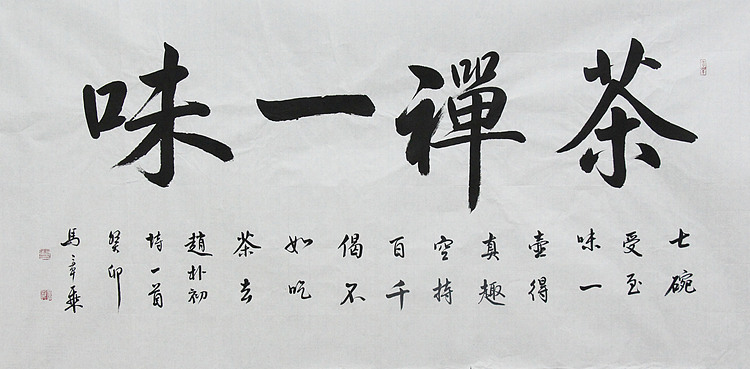 茶禪一味
七碗
受至
味一
壺得
真趣
空持
百千
偈不
如吃
茶去
趙朴初
詩一首
癸卯
馬章乘